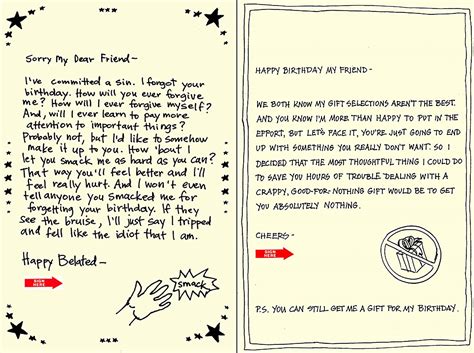 Sorry My Dear Friend-
I've committed a sin. I forgot your
birthday. How will you ever forgive
me? How will I ever forgive myself?
And, will I ever learn to pay more
attention to important things?
Probably not, but I'd like to somehow
make it up to you. How 'bout I
let you smack me as hard as you can?
That way you'll feel better and I'll
feel really hurt. And I won't even
tell anyone you smacked me for
forgetting your birthday. If they
see the bruise, I'll just say I tripped
and fell like the idiot that I am.
Happy Belated-
SIGN
HERE
smack
HAPPY BIRTHDAY MY FRIEND-
WE BOTH KNOW MY GIFT SELECTIONS AREN'T THE BEST.
AND YOU KNOW I'M MORE THAN HAPPY TO PUT IN THE
EFFORT, BUT LET'S FACE IT, YOU'RE JUST GOING TO END
UP WITH SOMETHING YOU REALLY DON'T WANT. SO I
DECIDED THAT THE MOST THOUGHTFUL THING I COULD DO
TO SAVE YOU HOURS OF TROUBLE DEALING WITH A
CRAPPY, GOOD-FOR-NOTHING GIFT WOULD BE TO GET
YOU ABSOLUTELY NOTHING.
CHEERS-
SIGN
HERE
P.S. YOU CAN STILL GET ME A GIFT FOR MY BIRTHDAY.